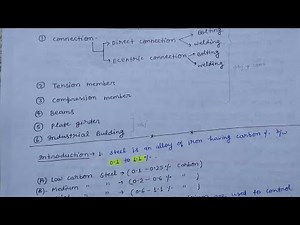 ① Connection → Direct connection → bolting
→ welding
→ Eccentric connection → bolting
→ welding
② Tension member
③ Compression member
④ Beams
⑤ Plate girders
⑥ Industrial Building
Introduction → Steel is an alloy of iron having carbon % b/w
0.1 to 1.1 %.
(A) Low carbon steel → (0.1 - 0.25 % carbon)
(B) Medium " " → (0.2 - 0.6 % " )
" " → (0.6 - 1.1 % " )
are used to control